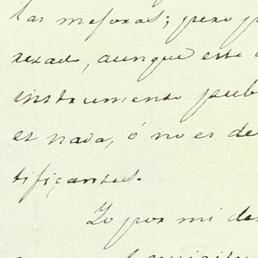 las mejoras; pero p
rerad, aunque este
instrumento pub
es nada, ó no es de
tificantes.
Yo por mi de